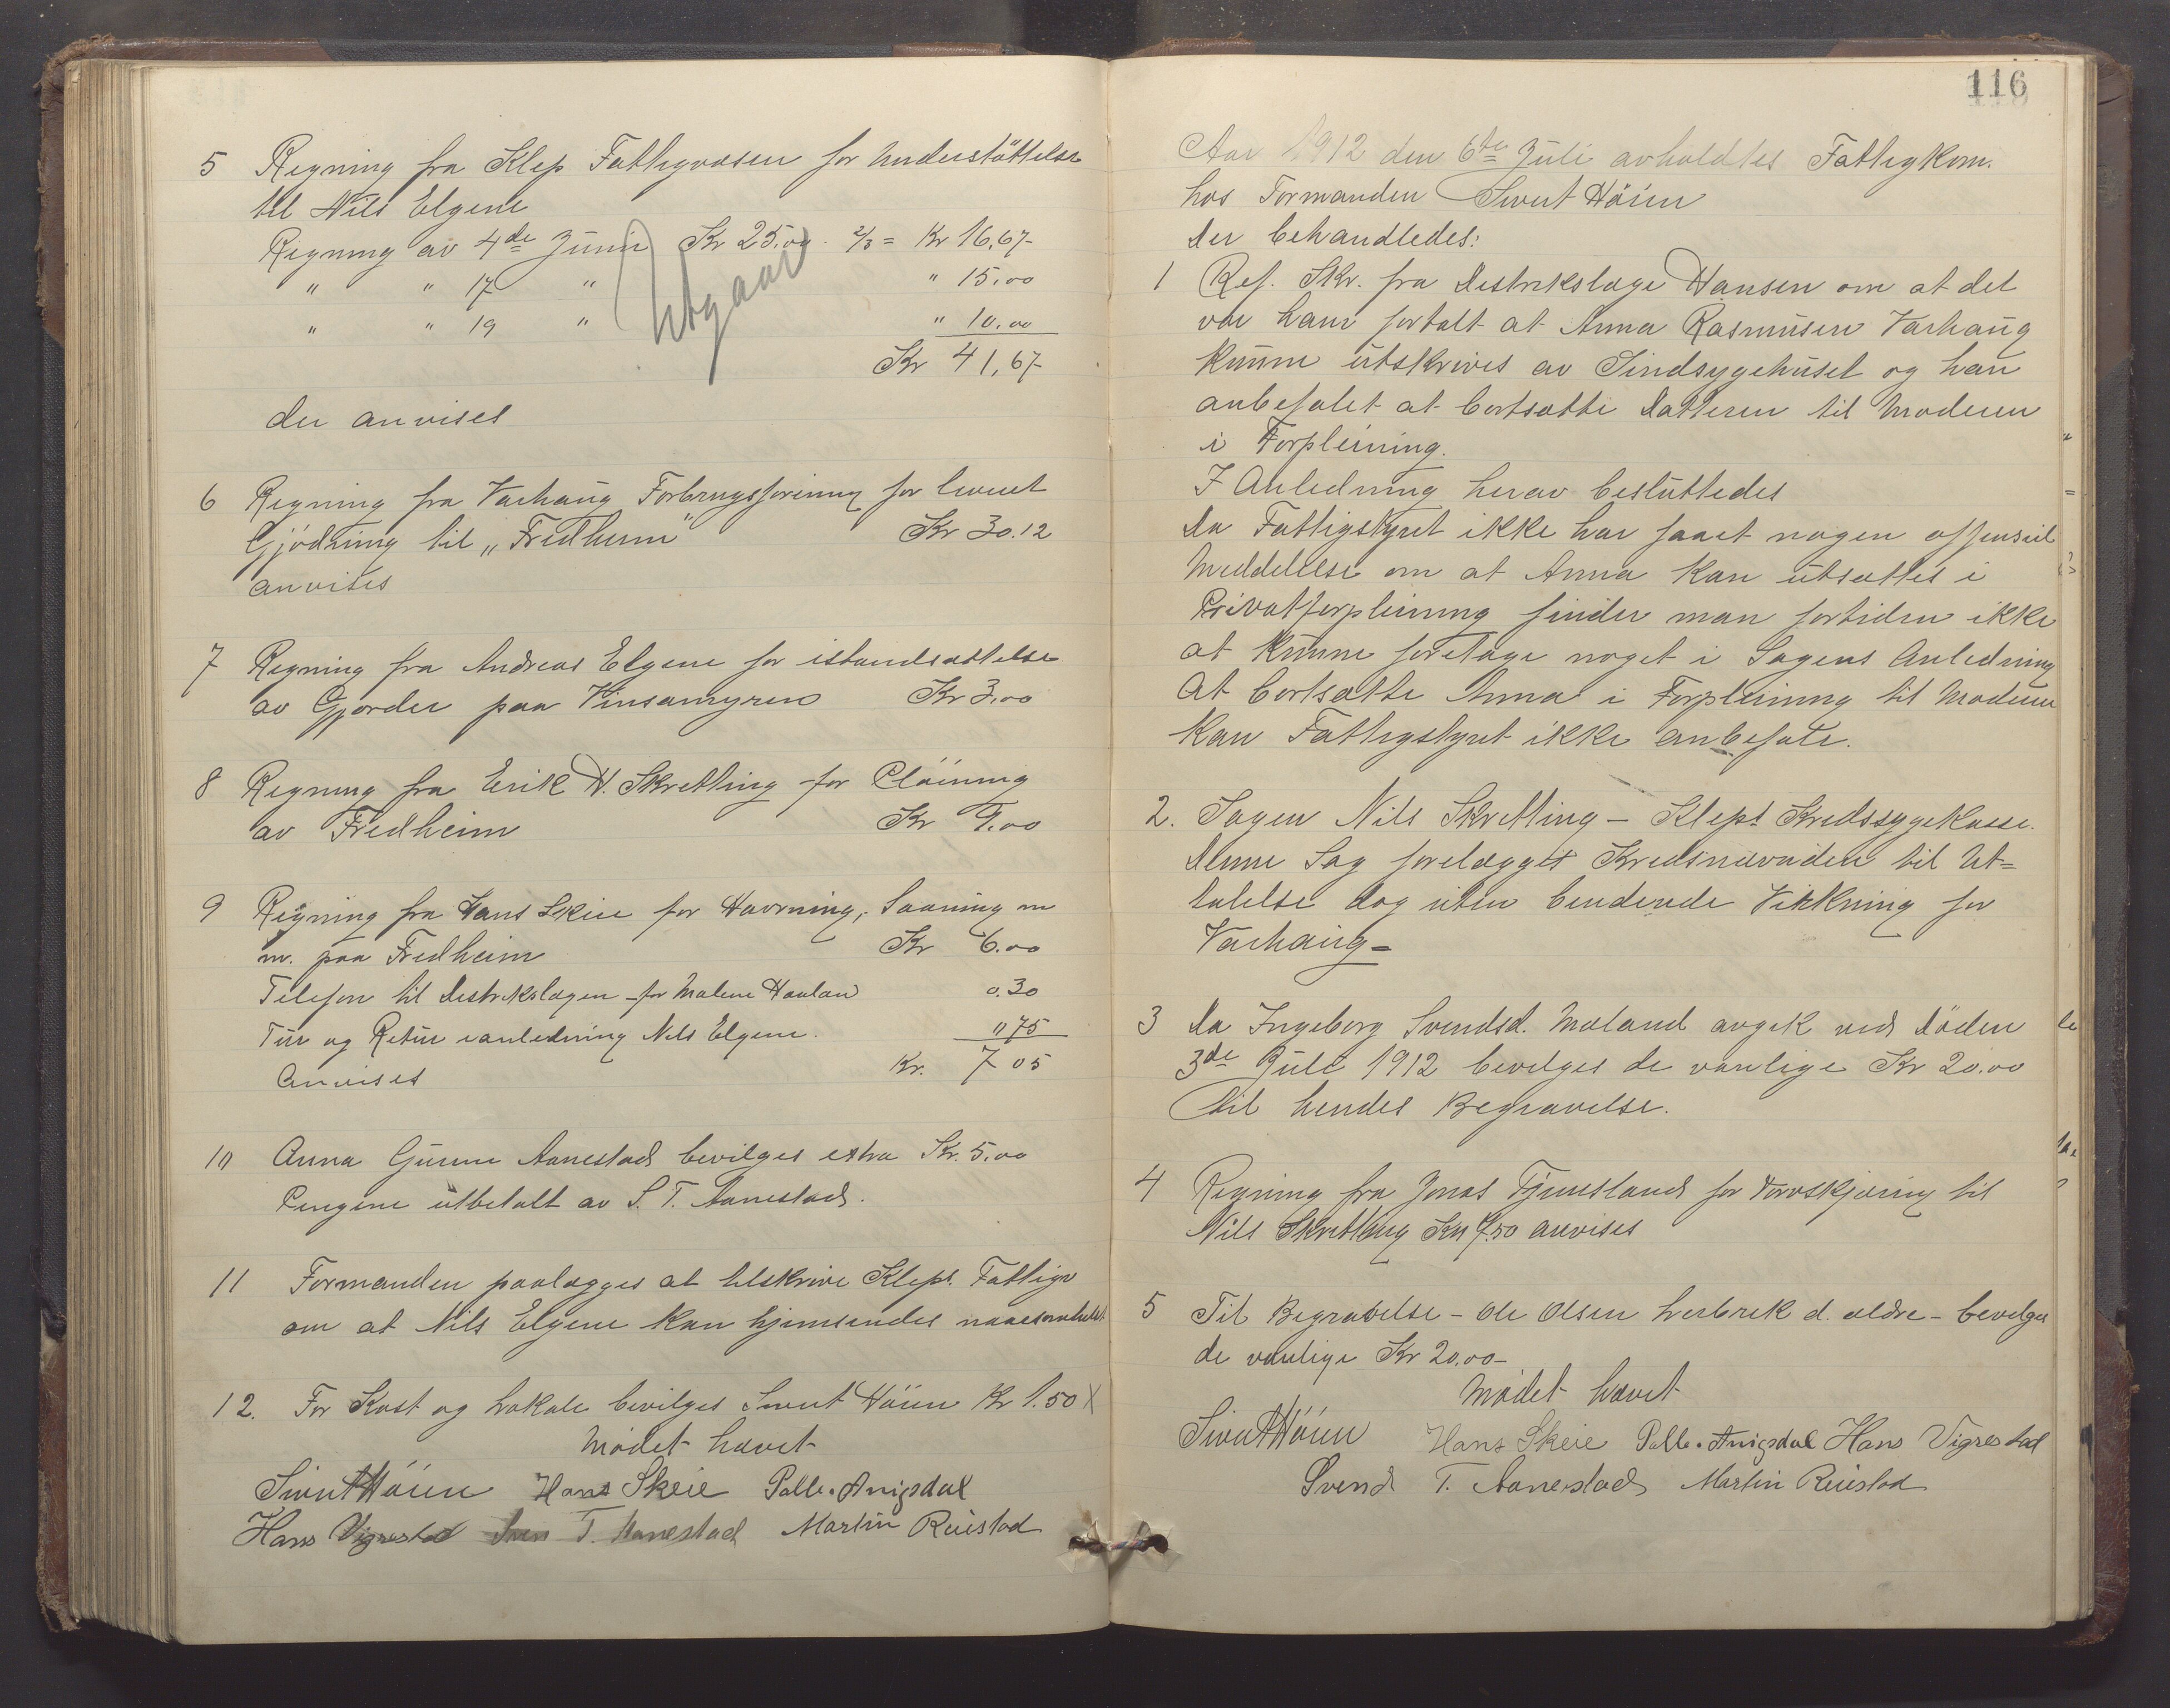 5 Regning fra Klep Fattigvæsen for Understöttelse
til Nils Elgene
Regning av 4de Juni Kr 25,00. 2/3 = Kr 16,67
" " 17 " " 15,00
" " 19 " " 10,00
Utgaar
Kr 41,67
der anvises
6 Regning fra Varhaug Forbrugsforening for leveret
Gjödning til „Fredheim" Kr 30.12
anvises
7 Regning fra Andreas Elgene for istandsættelse
av Gjerder paa Vinsamyren Kr 3,00
8 Regning fra Erik H. Skretting for Plöining
av Fredheim Kr 9.00
9 Regning fra Hans Skeie for Havrning, Saaning m
m. paa Fredheim Kr 6.00
Telefon til Destrikslægen for Malene Haaland 0.30
Tur og Retur ianledning Nils Elgene. " 75
Anvises Kr. 7 05
10 Anna Gurine Aanestad bevilges extra Kr. 5,00
Pengene utbetalt av S. T. Aanestad.
11 Formanden paalægges at tilskrive Kleps Fattigv
om at Nils Elgene kan hjemsendes naarsomhelst.
12. For Kost og Lokale bevilges Sivert Höien Kr 1.50 X
Mödet hævet
Sivert Höien Hans Skeie Palle. Anigsdal
Hans Vigrestad Sven T. Aanestad Martin Reiestad
116
Aar 1912 den 6te Juli avholdtes Fattigkom.
hos Formanden Sivert Höien
Der behandledes:
1 Ref. Skr. fra Destrikslæge Hansen om at det
var ham fortalt at Anna Rasmusen Varhaug
kunne utskrives av Sindsygehuset og han
anbefalet at bortsætte Datteren til Moderen
i Forpleining.
I Anledning herav besluttedes
Da Fattigstyret ikke har faaet nogen offensiel
Meddelelse om at Anna kan utsættes i
Privatforpleining finder man fortiden ikke
at kunne foretage noget i Sagens Anledning
At bortsætte Anna i Forpleining til Moderen
kan Fattigstyret ikke anbefale.
2. Sagen Nils Skretting - Kleps Kredssygekasse.
Denne Sag forelægges Kredsnævnden til Ut=
talelse dog uten bindende Virkning for
Varhaug =
3 Da Ingeborg Svendsd. Mæland avgik ved Döden
3de Juli 1912 bevilges de vanlige Kr 20.00
til hendes Begravelse.
4 Regning fra Jonas Tjemsland for Torvskjæring til
Nils Skretting Kr 7.50 anvises
5 Til Begravelse - Ole Olsen Lerbrek d. ældre - bevilges
de vanlige Kr 20.00 -
Mödet hævet
Sivert Höien Hans Skeie Palle. Anigsdal Hans Vigrestad
Svend T. Aanestad Martin Reiestad